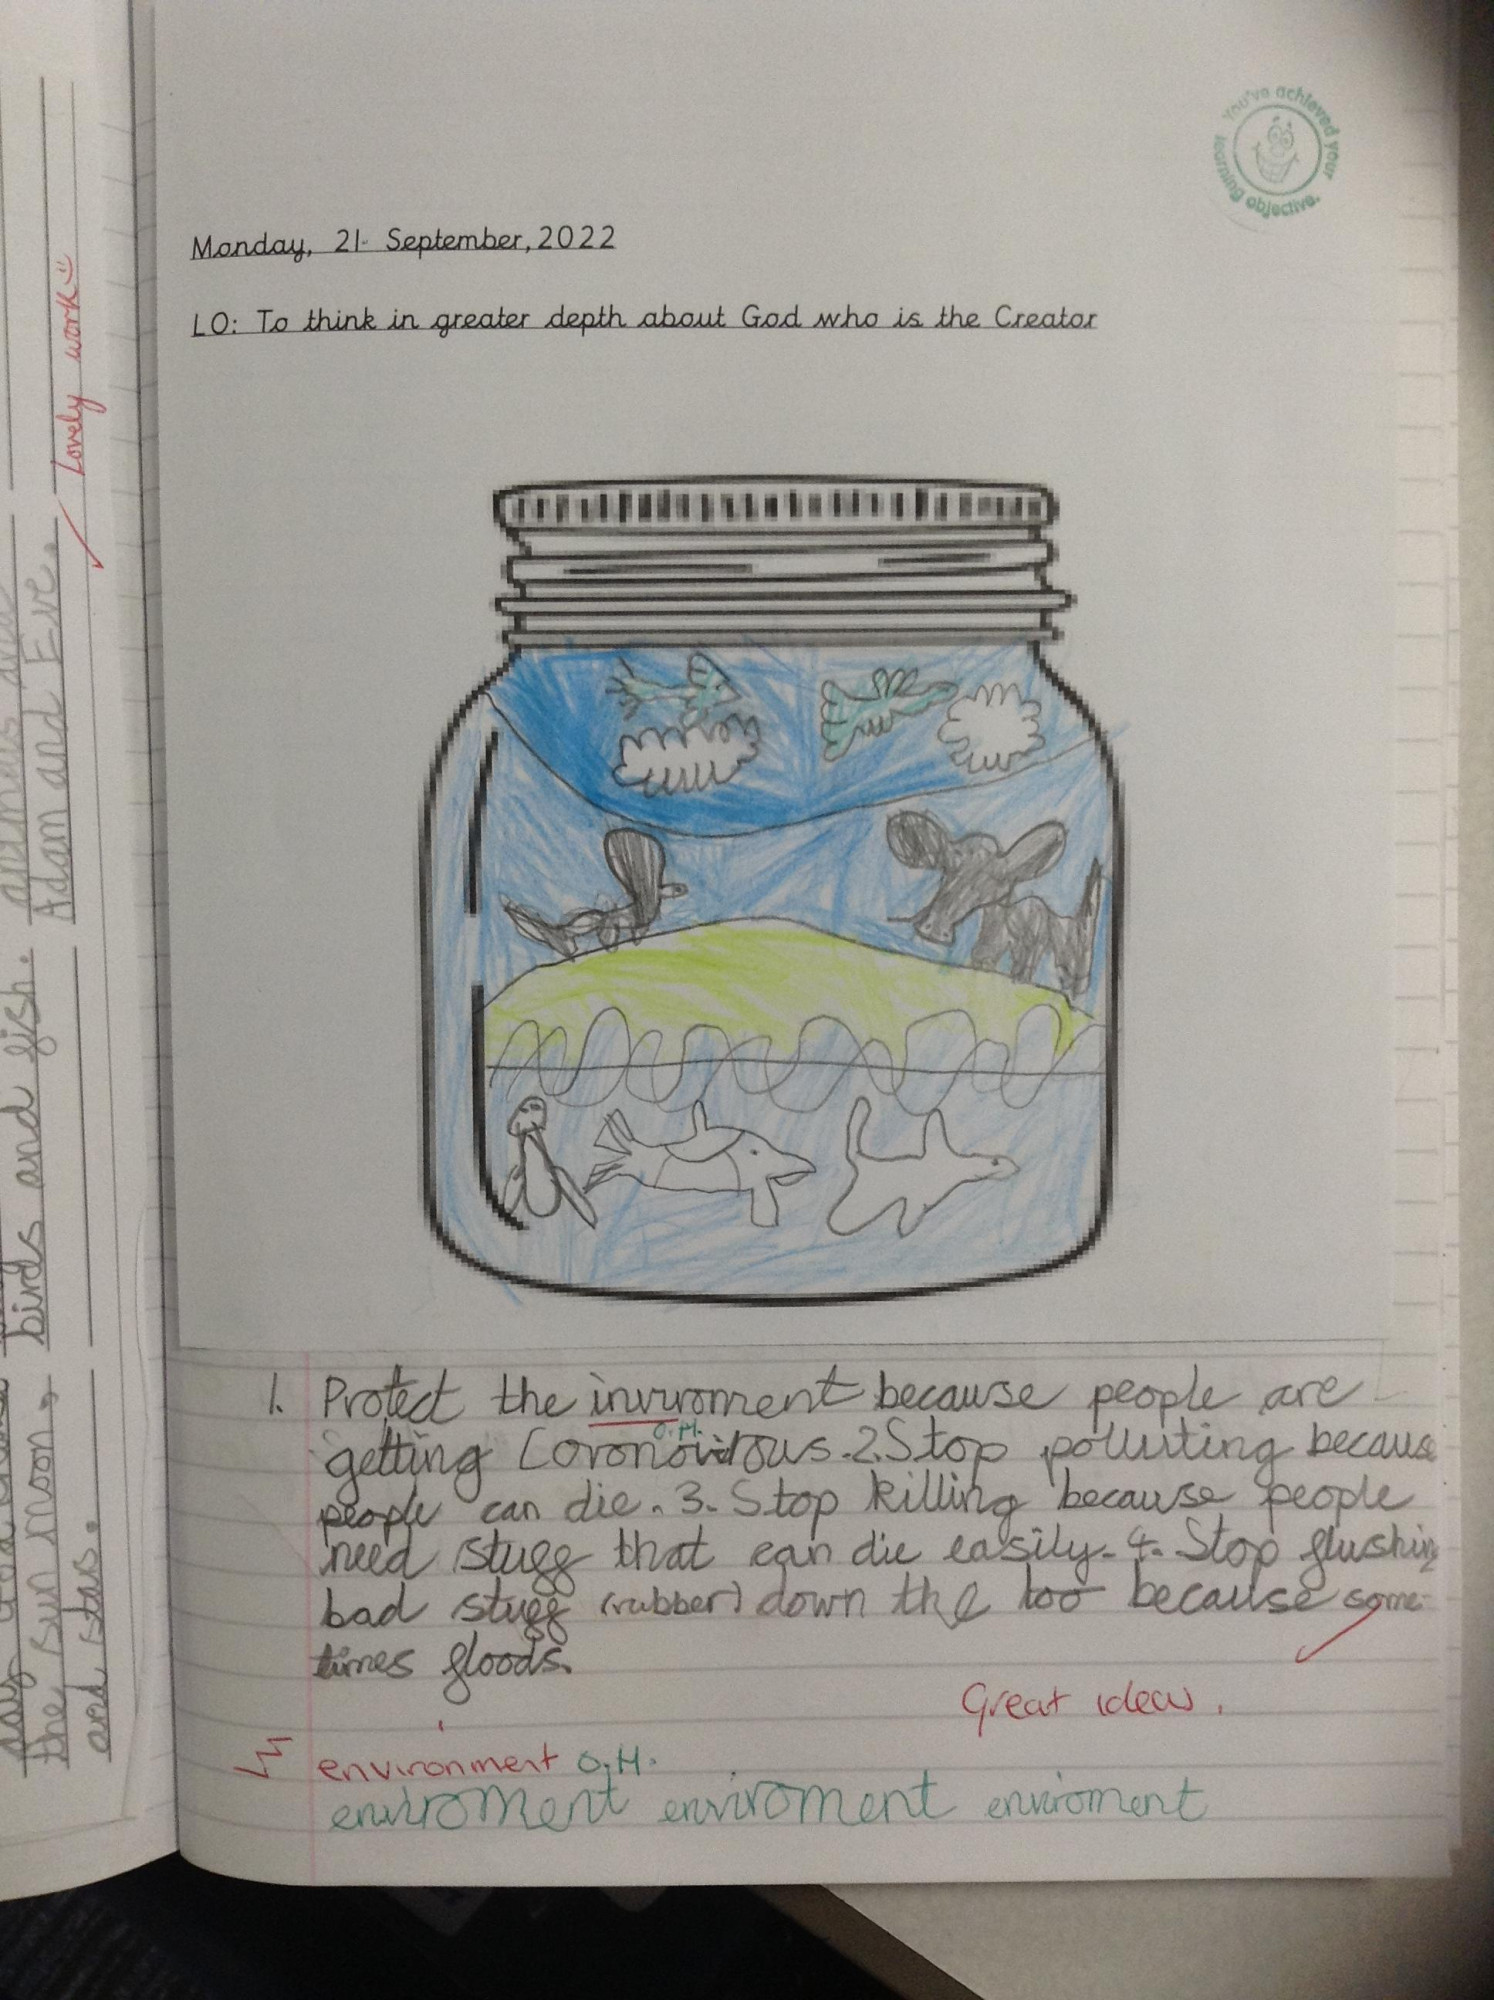 You've achieved your learning objective.
Monday, 21 September, 2022
LO: To think in greater depth about God who is the Creator
1. Protect the invuroment because people are
O.H.
getting Coronovirous. 2. Stop polluting because
people can die. 3. Stop killing because people
need stugg that can die easily. 4. Stop flushing
bad stugg (rubber) down the loo because some-
times floods.
Great ideas.
environment O.H.
enviroment enviroment enviroment
animals and
Adam and Eve.
Lovely work
birds and fish.
the sun moon,
and stars.